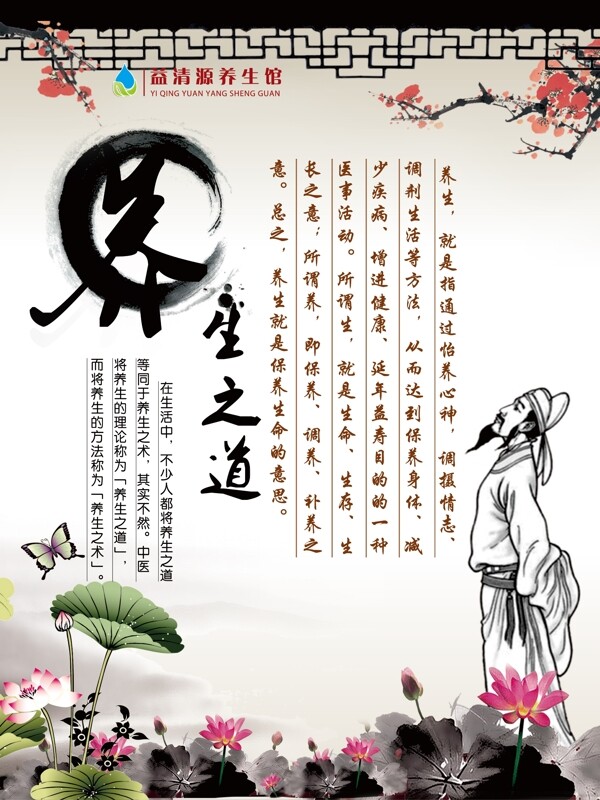 益清源养生馆
YI QING YUAN YANG SHENG GUAN
养生之道
养生，就是指通过怡养心神，调摄情志、
调剂生活等方法，从而达到保养身体、减
少疾病、增进健康、延年益寿目的的一种
医事活动。所谓生，就是生命、生存、生
长之意；所谓养，即保养、调养、补养之
意。总之，养生就是保养生命的意思。
在生活中，不少人都将养生之道
等同于养生之术，其实不然。中医
将养生的理论称为「养生之道」，
而将养生的方法称为「养生之术」。